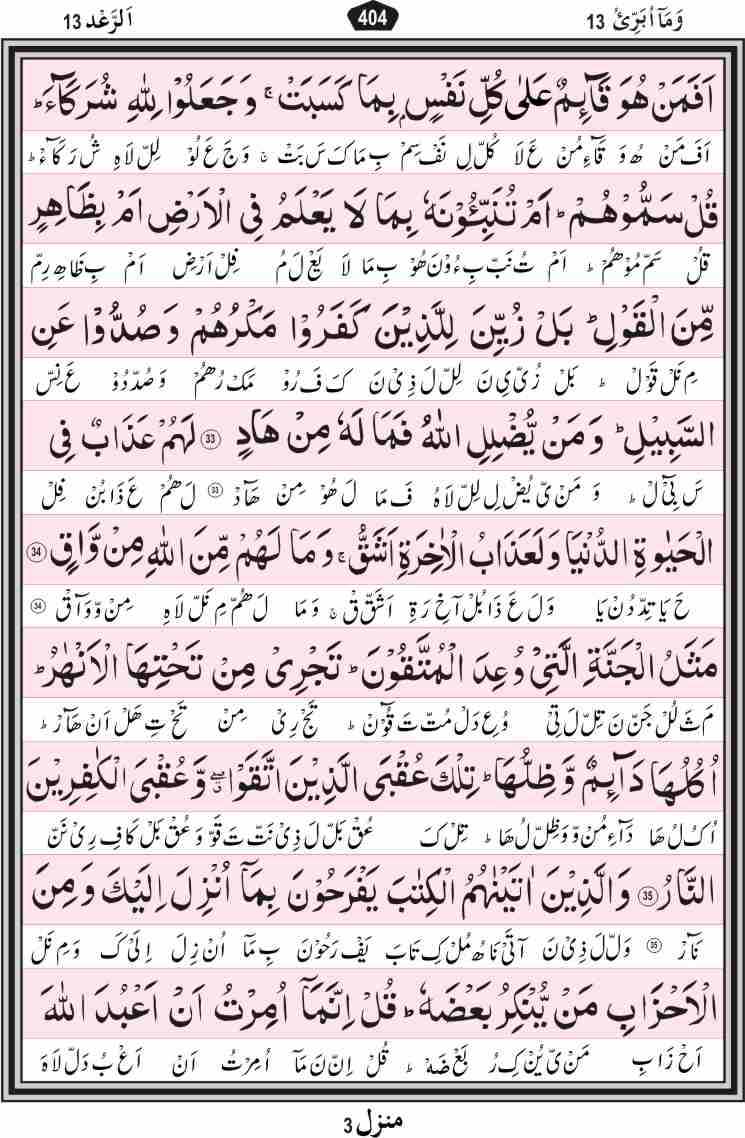 وَمَآ اُبَرِّئُ 13
404
اَلرَّعْد 13
اَفَمَنْ هُوَ قَآئِمٌ عَلٰى كُلِّ نَفْسٍۭ بِمَا كَسَبَتْ ۚ وَجَعَلُوْا لِلّٰهِ شُرَكَآءَ ؕ
اَفَ مَنْ هُ وَ قَآءِ مُنْ عَ لَا كُلِّ لِ نَفْ سِمْ بِ مَا كَ سَ بَتْ ۚ وَ جَ عَ لُوْ لِلْ لَاهِ شُ رَ كَآءْ ؕ
قُلْ سَمُّوْهُمْ ؕ اَمْ تُنَبِّـُٔوْنَهٗ بِمَا لَا يَعْلَمُ فِى الْاَرْضِ اَمْ بِظَاهِرٍ
قُلْ سَمْ مُوْهُمْ ؕ اَمْ تُ نَبْ بِ ءُوْنَ هُوْ بِ مَا لَا يَعْ لَ مُ فِلْ اَرْضِ اَمْ بِ ظَا هِ رِمْ
مِّنَ الْقَوْلِ ؕ بَلْ زُيِّنَ لِلَّذِيْنَ كَفَرُوْا مَكْرُهُمْ وَصُدُّوْا عَنِ
مِ نَلْ قَوْلْ ؕ بَلْ زُىْ ىِ نَ لِلْ لَ ذِىْ نَ كَ فَ رُوْ مَكْ رُهُمْ وَ صُدْ دُوْ عَ نِسْ
السَّبِيْلِ ؕ وَمَنْ يُّضْلِلِ اللّٰهُ فَمَا لَهٗ مِنْ هَادٍ 33 لَهُمْ عَذَابٌ فِى
سَ بِىْ لْ ؕ وَ مَنْ ىُّ ىُضْ لِ لِلْ لَاهُ فَ مَا لَ هُوْ مِنْ هَآدْ 33 لَ هُمْ عَ ذَا بُنْ فِلْ
الْحَيٰوةِ الدُّنْيَا وَلَعَذَابُ الْاٰخِرَةِ اَشَقُّ ۚ وَمَا لَهُمْ مِّنَ اللّٰهِ مِنْ وَّاقٍ 34
حَ يَا تِدْ دُنْ يَا وَ لَ عَ ذَا بُلْ آخِ رَ ةِ اَشَقْ قْ ۚ وَ مَا لَ هُمْ مِ نَلْ لَاهِ مِنْ وَّ وَآقْ 34
مَثَلُ الْجَنَّةِ الَّتِىْ وُعِدَ الْمُتَّقُوْنَ ؕ تَجْرِىْ مِنْ تَحْتِهَا الْاَنْهٰرُ ؕ
مَ ثَ لُلْ جَنْ نَ تِلْ لَ تِىْ وُ عِ دَلْ مُتْ تَ قُوْنْ ؕ تَجْ رِىْ مِنْ تَحْ تِ هَلْ اَنْ هَآرْ ؕ
اُكُلُهَا دَآئِمٌ وَّظِلُّهَا ؕ تِلْكَ عُقْبَى الَّذِيْنَ اتَّقَوْا ۖ وَّعُقْبَى الْكٰفِرِيْنَ
اُ كُ لُ هَا دَآءِ مُنْ وَّ وَ ظِلْ لُ هَا ؕ تِلْ كَ عُقْ بَلْ لَ ذِىْ نَتْ تَ قَوْ وَ عُقْ بَلْ كَا فِ رِىْ نَنْ
النَّارُ 35 وَالَّذِيْنَ اٰتَيْنٰهُمُ الْكِتٰبَ يَفْرَحُوْنَ بِمَآ اُنْزِلَ اِلَيْكَ وَمِنَ
نَآرْ 35 وَلْ لَ ذِىْ نَ آتَىْ نَا هُ مُلْ كِ تَابَ يَفْ رَ حُوْنَ بِ مَآ اُنْ زِ لَ اِ لَىْ كَ وَ مِ نَلْ
الْاَحْزَابِ مَنْ يُّنْكِرُ بَعْضَهٗ ؕ قُلْ اِنَّمَآ اُمِرْتُ اَنْ اَعْبُدَ اللّٰهَ
اَحْ زَا بِ مَنْ ىُّ ىُنْ كِ رُ بَعْ ضَهْ ؕ قُلْ اِنْ نَ مَآ اُ مِرْتُ اَنْ اَعْ بُ دَلْ لَاهَ
منزل 3